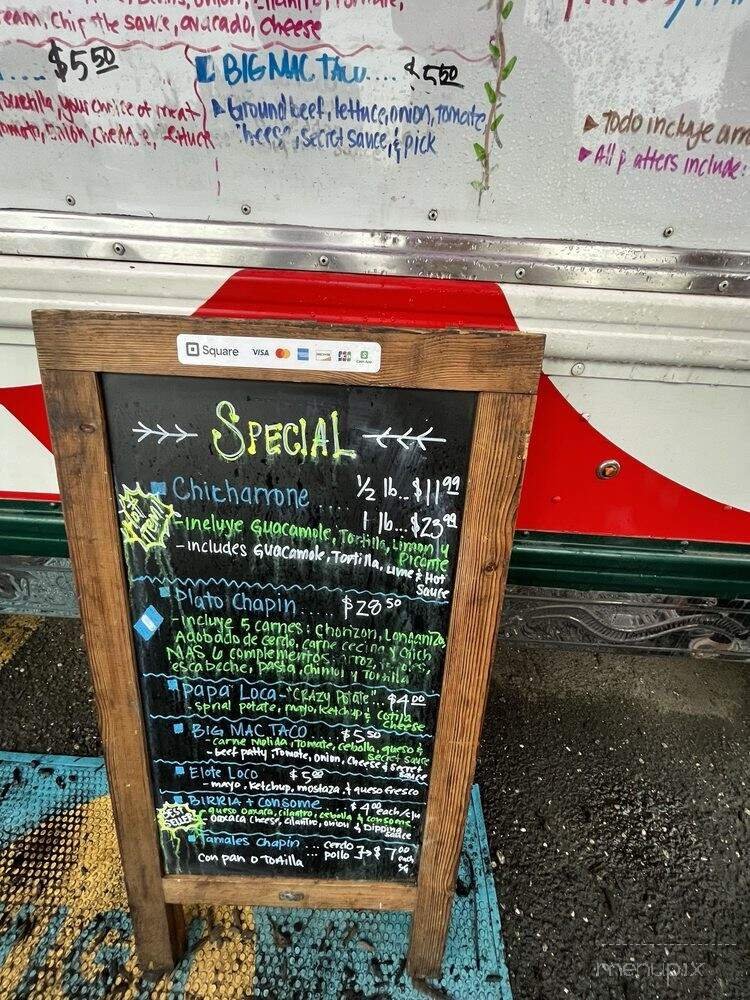 beans, onion, cilantro, tomato,
cream, chipotle sauce, avacado, cheese
.... $5 50
BIG MAC TACO.... $5 50
tortilla, your choice of meat
tomato, onion, chedd e, lettuce
Ground beef, lettuce, onion, tomate
cheese, secret sauce, & pick
Todo incluye
All p atters include:
Square VISA
SPECIAL
Chicharrone 1/2 lb... $11 99
1 lb... $23 99
-incluye Guacamole, Tortilla, Limon y
Picante
-includes Guacamole, Tortilla, Lime & Hot
Sauce
Plato Chapin ..... $28 50
-incluye 5 carnes: Chorizon, Longaniza,
Adobado de cerdo, carne cecina y Chich
MAS 6 complementos: arroz,
escabeche, Pasta, chirmol y Tortilla
Papa Loca -"CRAZY Potate"... $4 00
- Spiral potate, mayo, ketchup & Cotija
Cheese
BIG MAC TACO $5 50
-carne Molida, Tomate, cebolla, queso &
Secret Sauce
-beef patty, Tomate, onion, cheese & Secret
Sauce
Elote Loco $5 00
-mayo, ketchup, mostaza, & queso Fresco
BEST
SELLER
BIRRIA + consome $4 00 each/c/u
queso oaxaca, cilantro, cebolla & consome
oaxaca cheese, cilantro, onion & Dipping
sauce
Tamales Chapin ... cerdo
... pollo $7 00
each
Con pan o Tortilla
menupix